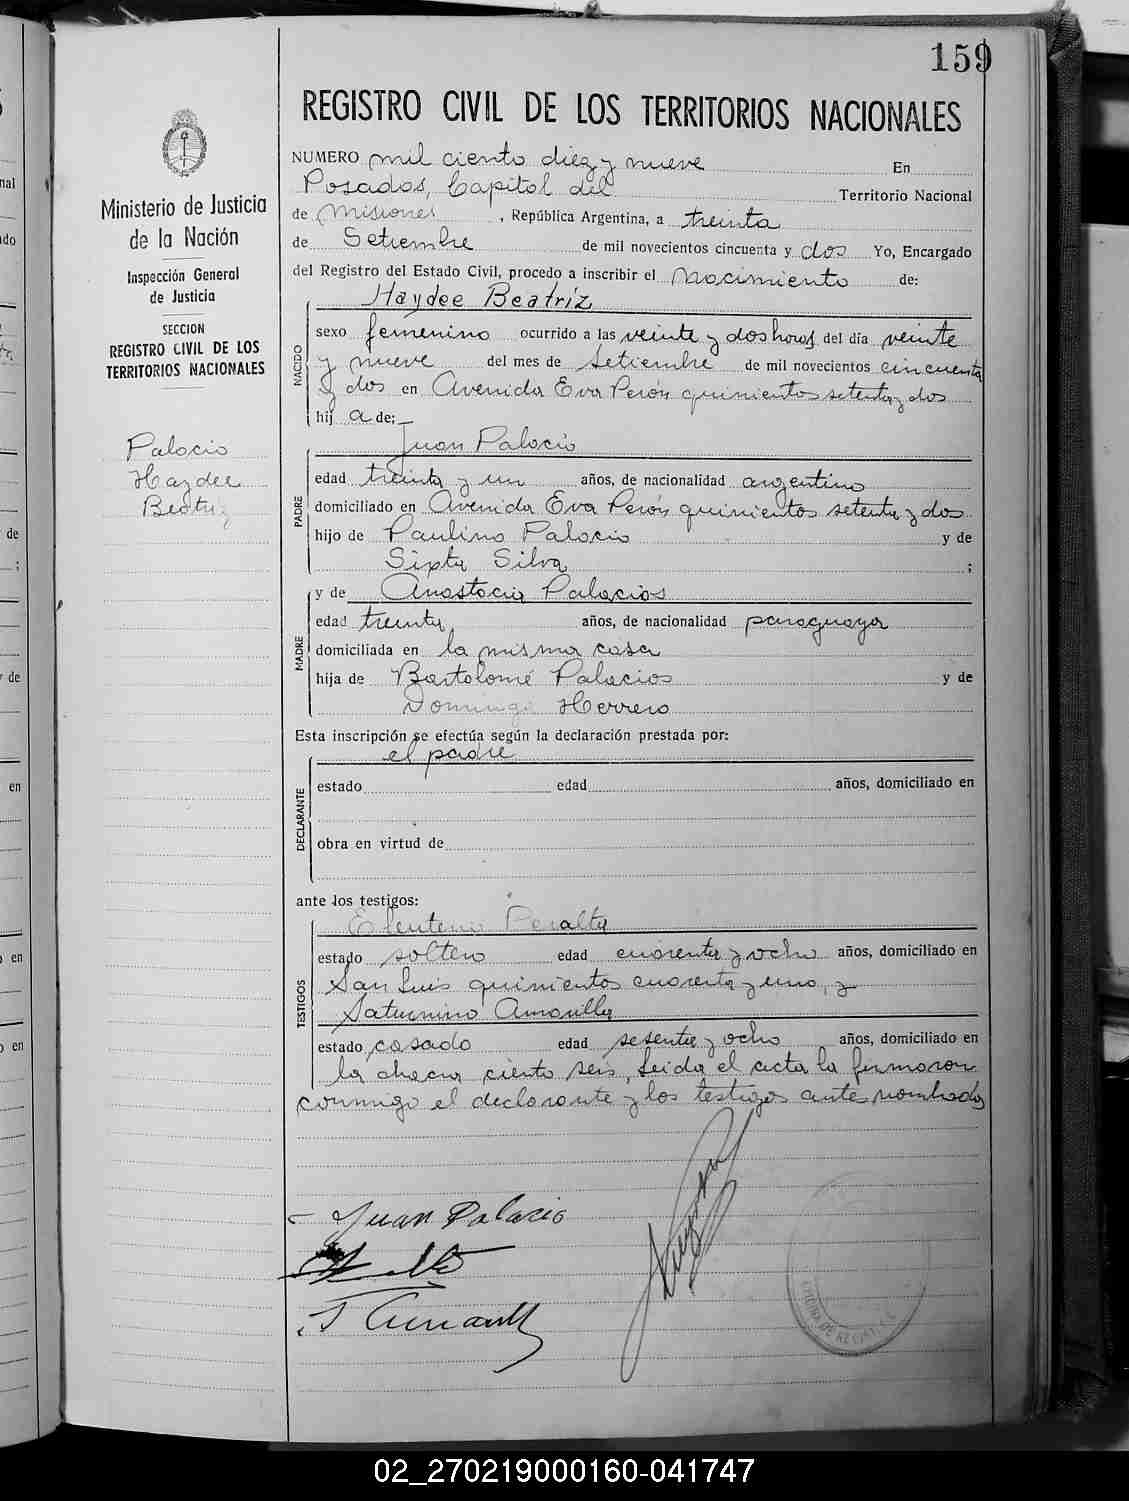 159
REGISTRO CIVIL DE LOS TERRITORIOS NACIONALES
Ministerio de Justicia
de la Nación
Inspección General
de Justicia
SECCION
REGISTRO CIVIL DE LOS
TERRITORIOS NACIONALES
Palacio
Haydee
Beatriz
NUMERO mil ciento diez y nueve En
Posadas, Capital del Territorio Nacional
de Misiones, República Argentina, a treinta
de Setiembre de mil novecientos cincuenta y dos Yo, Encargado
del Registro del Estado Civil, procedo a inscribir el nacimiento de:
Haydee Beatriz
NACIDO
sexo femenino ocurrido a las veinte y dos horas del día veinte
y nueve del mes de Setiembre de mil novecientos cincuenta
y dos en Avenida Eva Perón quinientos setenta y dos
hij a de:
Juan Palacio
PADRE
edad treinta y un años, de nacionalidad argentino
domiciliado en Avenida Eva Perón quinientos setenta y dos
hijo de Paulino Palacio y de
Sixta Silva ;
y de Anastacia Palacios
MADRE
edad treinta años, de nacionalidad paraguaya
domiciliada en la misma casa
hija de Bartolomé Palacios y de
Dominga Herrero
Esta inscripción se efectúa según la declaración prestada por:
el padre
DECLARANTE
estado edad años, domiciliado en
obra en virtud de
ante los testigos:
Eleuterio Peralta
TESTIGOS
estado soltero edad cuarenta y ocho años, domiciliado en
San Luis quinientos cuarenta y uno, y
Saturnino Amarilla
estado casado edad sesenta y ocho años, domiciliado en
la chacra ciento seis, Leida el acta la firmaron
conmigo el declarante y los testigos antes nombrados
Juan Palacio
S Amarilla
02_270219000160-041747